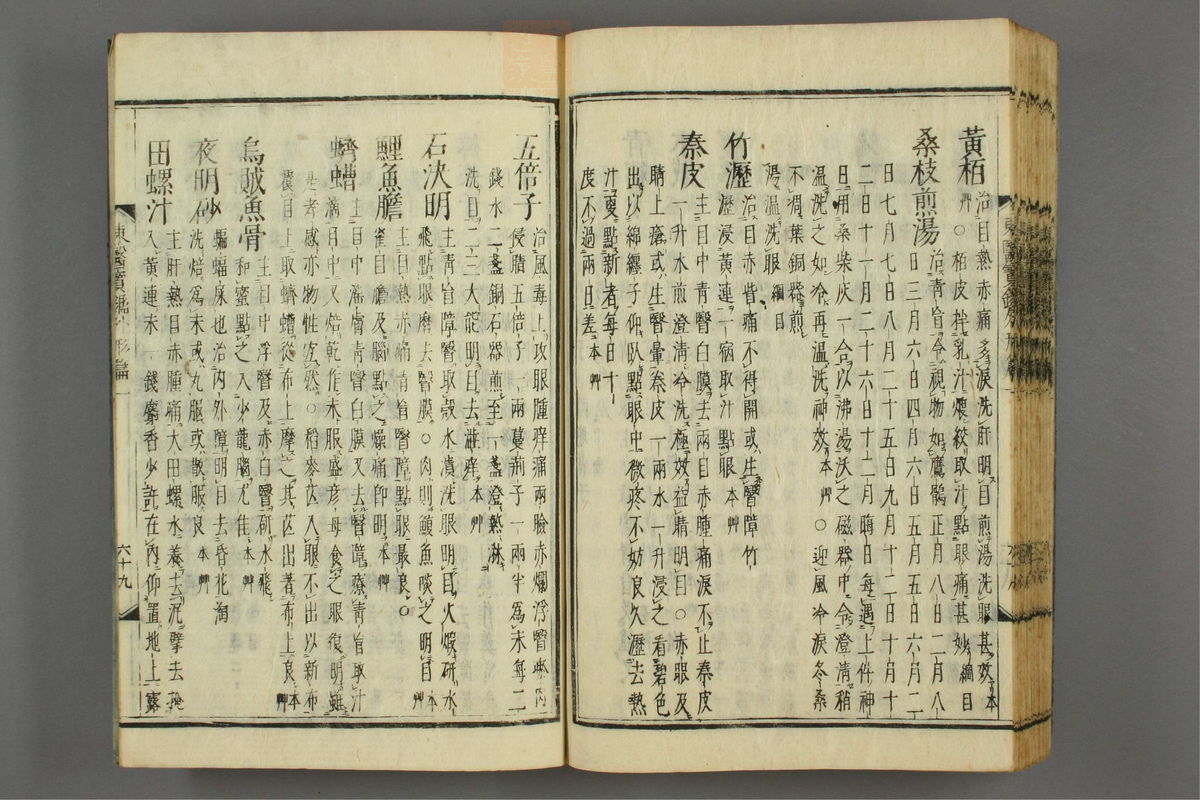 黃栢治目熱赤痛多淚洗肝明目煎湯洗眼甚效本
艸○栢皮拌乳汁煨絞取汁點眼痛甚妙綱目
桑枝煎湯治靑盲令視物如鷹鶻正月八日二月八
日三月六日四月六日五月五日六月二
日七月七日八月二十五日九月十二日十月十
二日十一月二十六日十二月晦日每遇上件神
日用桑柴灰一合以沸湯沃之磁器中令澄淸稍
溫洗之如冷再溫洗神效本艸○迎風冷淚冬桑
不凋葉銅器煎
湯溫洗眼綱目
竹瀝治目赤眥痛不得開或生瞖障竹
瀝浸黃連一宿取汁點眼本艸
秦皮主目中靑瞖白膜去兩目赤腫痛淚不止秦皮
一升水煎澄淸冷洗極效益睛明目○赤眼及
睛上瘡或生瞖暈秦皮一兩水一升浸之看碧色
出以綿纏子仰臥點眼中微疼不妨良久瀝去熱
汁更點新者每日十
度不過兩日差本艸
五倍子治風毒上攻眼腫痒痛兩瞼赤爛浮瞖瘀肉
侵睛五倍子一兩蔓荊子一兩半爲末每二
錢水二盞銅石器煎至一盞澄熱淋
洗日二三大能明目去澁痒本艸
石決明主靑盲障瞖取殼水漬洗眼明目火煅硏水
飛點眼磨去瞖膜○肉則鰒魚啖之明目本艸
鯉魚膽主目熱赤痛靑盲瞖障點眼最良○
雀目膽及腦點之燥痛卽明本艸
蠐螬主目中瀋膚靑瞖白膜又去瞖障瘀靑盲取汁
滴目中又焙乾作末服盛彦母食之眼復明雖
是孝感亦物性宜然○稻麥芒入眼不出以新布
覆目上取蠐螬從布上摩之其芒出著布上良本艸
烏賊魚骨主目中浮瞖及赤白瞖硏水飛
和蜜點之入少龍腦尤佳本艸
夜明砂蝙蝠屎也治內外障明目去昏花淘
洗焙爲末或丸服或散服良本艸
田螺汁主肝熱目赤腫痛大田螺水養去泥擘去掩
入黃連末一錢麝香少許在內仰置地上露
東醫寶鑑外形篇一
六十九